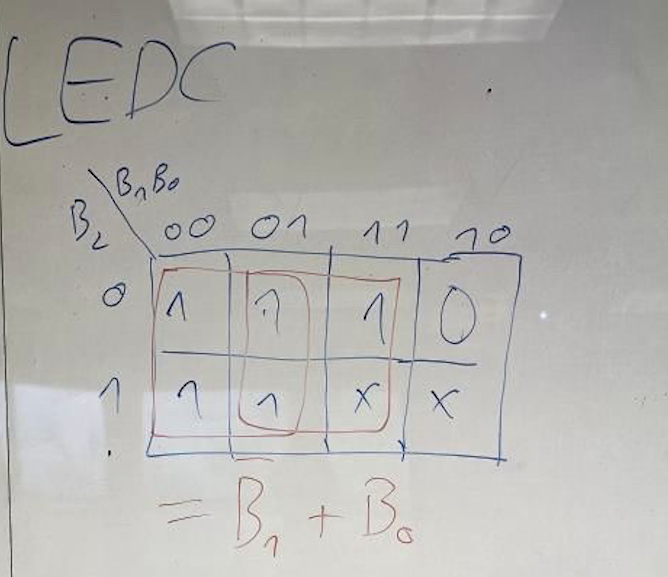 LEDC
B₁B₀
B₂ 00 01 11 10
0 1 1 1 0
1 1 1 x x
= B̅₁ + B₀